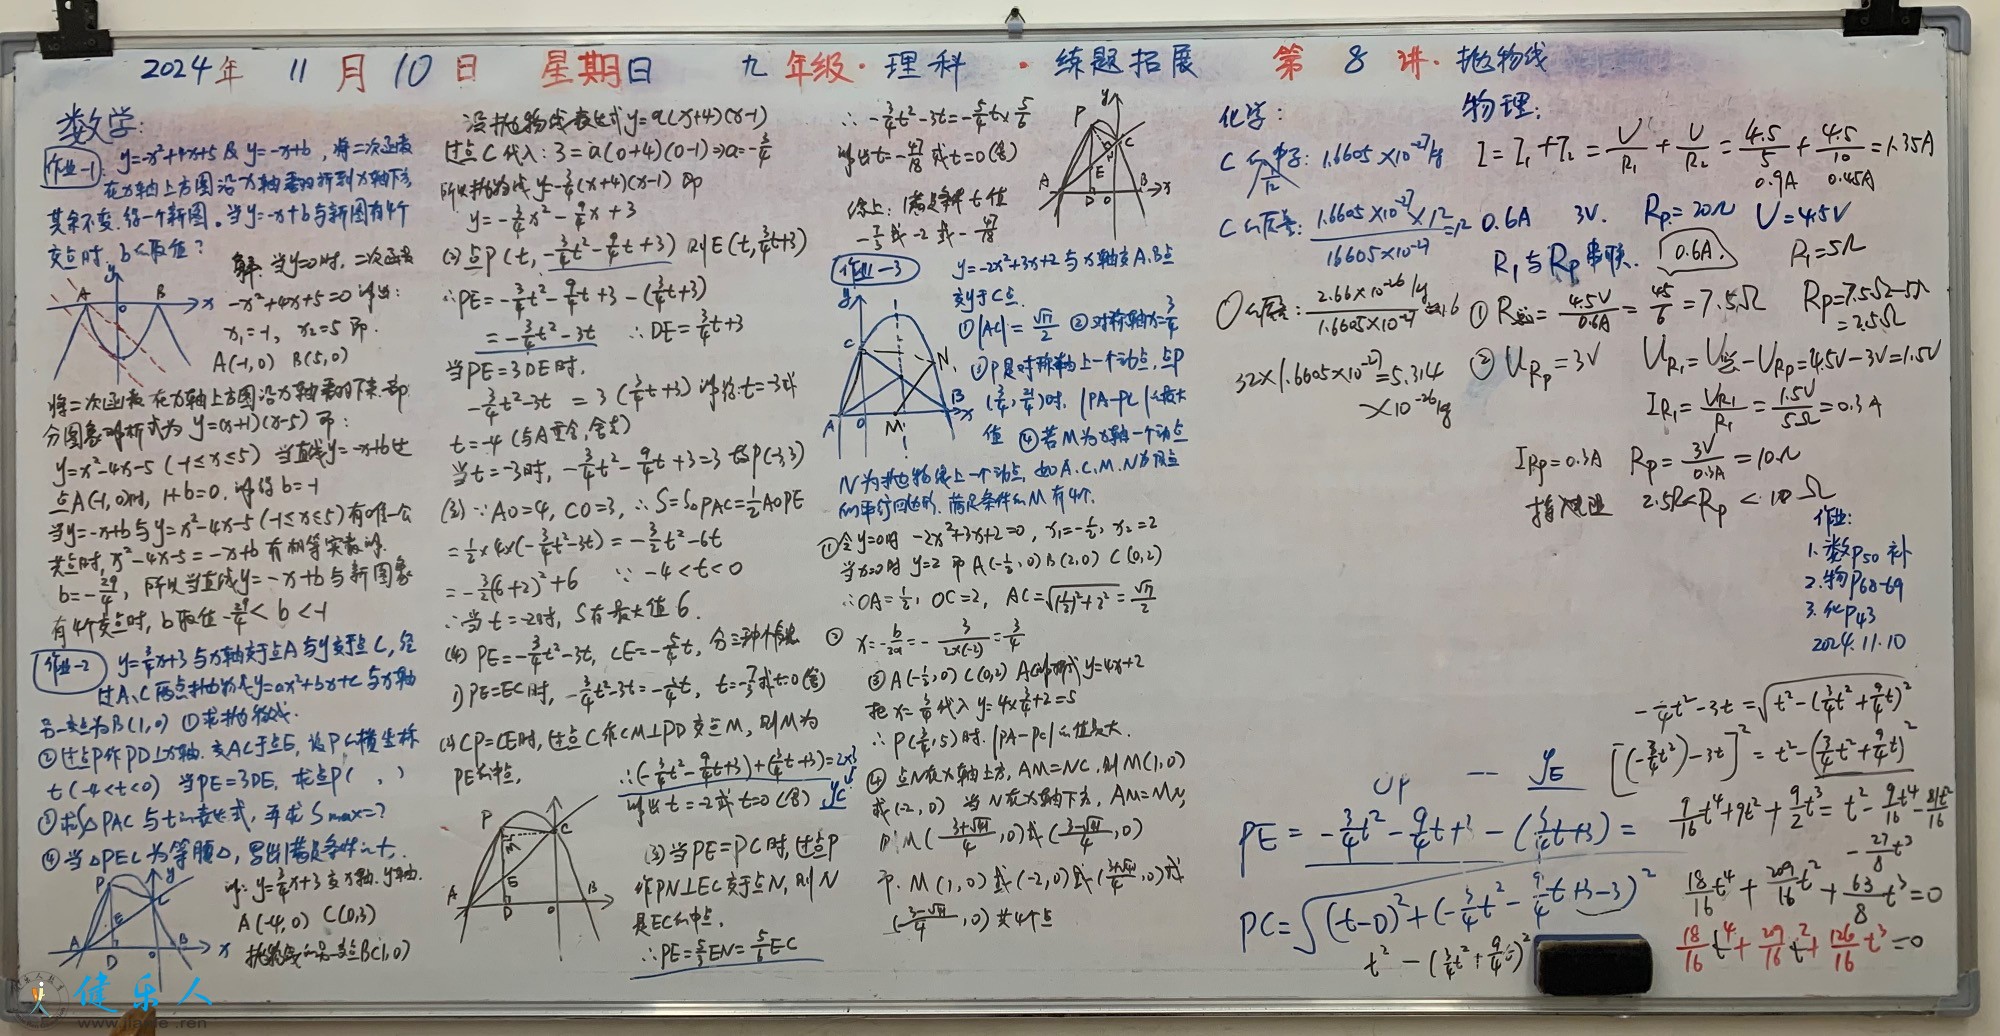 2024年 11月10日 星期日 九年级·理科·练题拓展 第8讲·抛物线
数学:
作业-1 y=-x²+4x+5 及 y=-x+b, 将二次函数
在x轴上方图沿x轴翻折到x轴下方
其余不变,得一个新图。当y=-x+b与新图有4个
交点时, b的取值?
解: 当y=0时, 二次函数
-x²+4x+5=0 得出:
x₁=-1, x₂=5 即
A(-1,0) B(5,0)
A B x y o
将二次函数在x轴上方图沿x轴翻下来 部
分图象解析式为 y=(x+1)(x-5) 即:
y=x²-4x-5 (-1≤x≤5) 当直线y=-x+b过
点A(-1,0)时, 1+b=0, 得 b=-1
当y=-x+b与y=x²-4x-5(-1≤x≤5)有唯一公
共点时, x²-4x-5=-x+b 有相等实数解
b=-29/4, 所以当直线y=-x+b与新图象
有4个交点时, b取值 -29/4<b<-1
作业-2 y=3/4x+3与x轴交于点A与y交于点C, 经
过A、C两点抛物线y=ax²+bx+c与x轴
另一交点为B(1,0) ①求抛物线.
②过点P作PD⊥x轴.交AC于点E, 设P的横坐标
t(-4<t<0) 当PE=3DE, 求点P( , )
③求S△PAC与t的表达式, 再求Smax=?
④当△PEC为等腰△, 写出满足条件的t.
解: y=3/4x+3交x轴.y轴.
A(-4,0) C(0,3)
抛物线的另一交点B(1,0)
P y C E A D o B x
设抛物线表达式 y=a(x+4)(x-1)
过点C代入: 3=a(0+4)(0-1)⇒a=-3/4
所以抛物线 y=-3/4(x+4)(x-1) 即
y=-3/4x²-9/4x+3
(2) 点P(t, -3/4t²-9/4t+3) 则E(t, 3/4t+3)
∴PE=-3/4t²-9/4t+3-(3/4t+3)
=-3/4t²-3t ∴DE=3/4t+3
当PE=3DE时,
-3/4t²-3t = 3(3/4t+3) 得: t=-3或
t=-4 (与A重合, 舍去)
当t=-3时, -3/4t²-9/4t+3=3 故P(-3,3)
(3) ∵AO=4, CO=3, ∴S=S△PAC=1/2AO·PE
=1/2×4×(-3/4t²-3t)=-3/2t²-6t
=-3/2(t+2)²+6 ∵-4<t<0
∴当t=-2时, S有最大值6.
(4) PE=-3/4t²-3t, CE=-5/4t, 分三种情况
1) PE=EC时, -3/4t²-3t=-5/4t, t=-7/3或t=0(舍)
(2) CP=CE时, 过点C作CM⊥PD交点M, 则M为
PE的中点,
∴(-3/4t²-9/4t+3)+(3/4t+3)=2×3
得出 t=-2或t=0(舍) yc
P M C E A D o B
(3) 当PE=PC时, 过点P
作PN⊥EC交于点N, 则N
是EC的中点.
∴PE=5/3EN=5/6EC
∴ -3/4t²-3t=-5/4t×5/6
得出t=-47/18或t=0(舍)
综上: 满足条件t值
-7/3或-2或-47/18
y P C E A D o B x
作业-3 y=-2x²+3x+2与x轴交A.B点
交y于C点.
①|AC|=√17/2 ②对称轴x=3/4
③P是对称轴上一个动点, 点P
|PA-PC|的最大
值 ④若M为x轴一个动点
y C N A o M B x
N为抛物线上一个动点, 如A.C.M.N为顶点
的平行四边形, 满足条件的M有4个.
①令y=0时 -2x²+3x+2=0, x₁=-1/2, x₂=2
当x=0时 y=2 即A(-1/2,0) B(2,0) C(0,2)
∴OA=1/2, OC=2, AC=√((1/2)²+2²)=√17/2
② x=-b/2a=-3/(2×(-2))=3/4
③ A(-1/2,0) C(0,2) AC的解析式 y=4x+2
把x=3/4代入 y=4×3/4+2=5
∴P(3/4,5)时. |PA-PC|的值最大.
④ 点N在x轴上方, AM=NC, 则M(1,0)
或(-2,0) 当N在x轴下方, AM=MN,
则M((3+√41)/4,0)或((3-√41)/4,0)
即. M(1,0)或(-2,0)或((3+√41)/4,0)或
((3-√41)/4,0) 共4个点
化学:
1/12
1.6605×10⁻²⁷kg
1.6605×10⁻²⁷×12/1.6605×10⁻²⁷=12
2.66×10⁻²⁶kg/1.6605×10⁻²⁷≈16
32×1.6605×10⁻²⁷=5.314
×10⁻²⁶kg
物理:
I=I₁+I₂=U/R₁+U/R₂=4.5/5+4.5/10=1.35A
0.9A 0.45A
0.6A 3V. Rp=20Ω U=4.5V
R₁与Rp串联. 0.6A. R₁=5Ω
① R总=4.5V/0.6A=45/6=7.5Ω Rp=7.5Ω-5Ω
=2.5Ω
② URp=3V UR₁=U总-URp=4.5V-3V=1.5V
IR₁=UR₁/R₁=1.5V/5Ω=0.3A
IRp=0.3A Rp=3V/0.3A=10Ω
2.5Ω<Rp<10Ω
作业:
1.数P50 补
2.物P68-69
3.化P43
2024.11.10
-3/4t²-3t=√(t²-(3/4t²+9/4t)²
[(-3/4t²)-3t]²=t²-(3/4t²+9/4t)²
9/16t⁴+9t²+9/2t³=t²-9/16t⁴-81t²/16
-27/8t³
18/16t⁴+209/16t²+63/8t³=0
18/16t⁴+209/16t²+126/16t³=0
yE
PE=-3/4t²-9/4t+3-(3/4t+3)=
PC=√((t-0)²+(-3/4t²-9/4t+3-3)²
t²-(3/4t²+9/4t)²
健乐人
www.jianle.ren